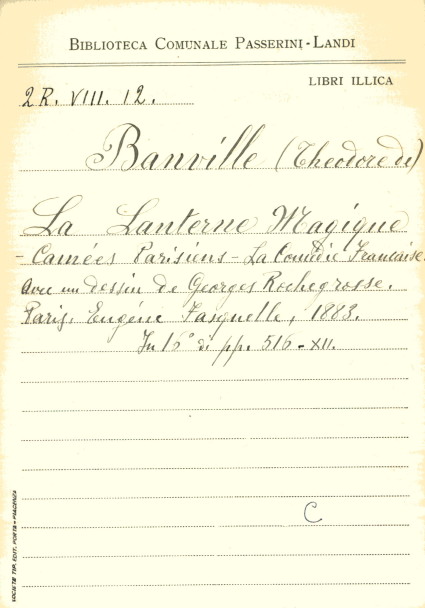 BIBLIOTECA COMUNALE PASSERINI-LANDI
LIBRI ILLICA
2R. VIII. 12.
Banville (Theodore de)
La Lanterne Magique
- Camées Parisiens - La Comédie Francaise.
Avec un dessin de Georges Rochegrosse.
Paris. Eugéne Fasquelle, 1883.
In 16° di pp. 516-XII.
C
SOCIETÀ TIP. EDIT. PORTA - PIACENZA